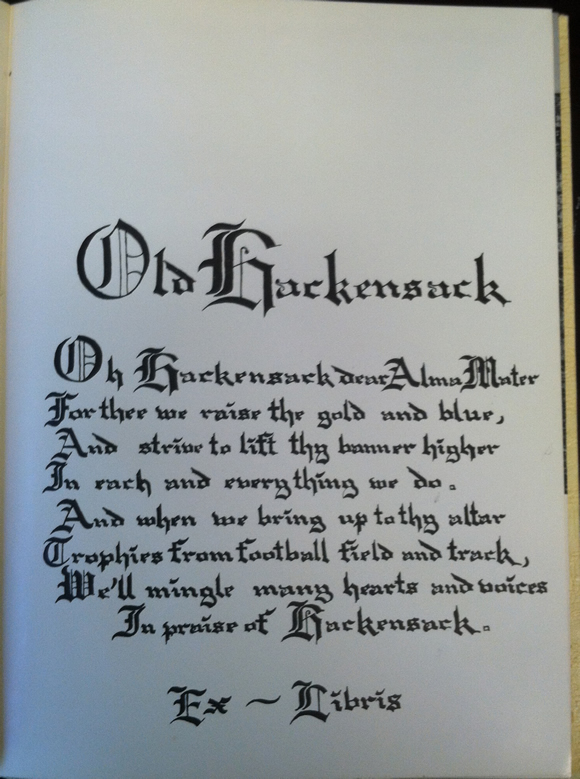 Old Hackensack
Oh Hackensack dear Alma Mater
For thee we raise the gold and blue,
And strive to lift thy banner higher
In each and everything we do.
And when we bring up to thy altar
Trophies from football field and track,
We'll mingle many hearts and voices
In praise of Hackensack.
Ex ~ Libris